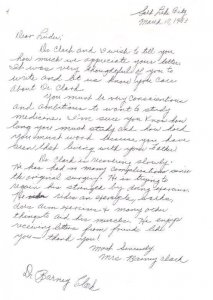 Salt Lake City
March 10, 1983
Dear Linden,
Dr. Clark and I wish to tell you
how much we appreciate your letter.
It was very thoughtful of you to
write and let us know you care
about Dr. Clark.
You must be very conscientious
and ambitious to want to study
medicine. I'm sure you know how
long you must study and how hard
you must work because you have
lived with your Father.
Dr. Clark is recovering slowly.
He has had so many complications since
the original surgery. He is trying to
regain his strength by doing exercises.
He rides an exercycle, walks,
does arm exercises & many other
things to aid his muscles. He enjoys
receiving letters from friends like
you - Thank you!
Most Sincerely
Mrs Barney Clark
Dr. Barney Clark